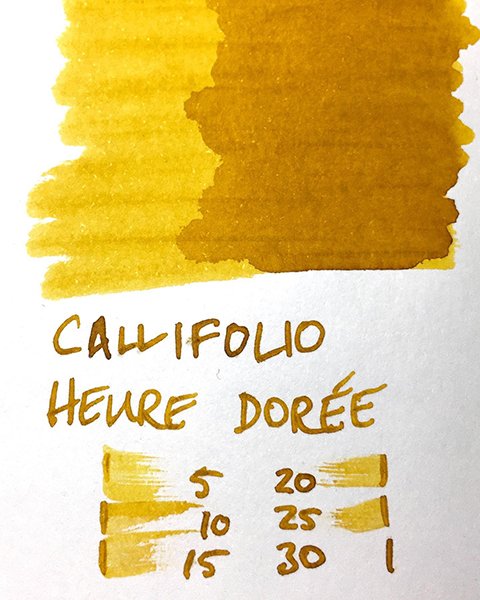 CALLIFOLIO
HEURE DORÉE
5 20
10 25
15 30